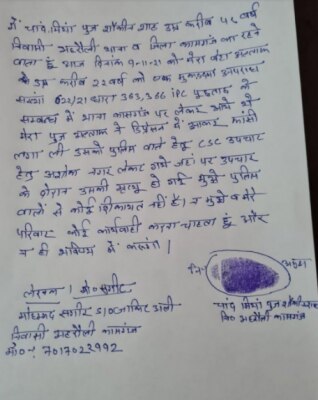 मैं चांद मियां पुत्र शौकीन शाह उम्र करीब ५५ वर्ष
निवासी अहरौली थाना व जिला कासगंज का रहने
वाला हूं आज दिनांक 9-11-21 को मेरा बेटा अल्ताफ
उम्र करीब 22 वर्ष को एक मुकदमा अपराध
संख्या 622/21 धारा 363, 366 IPC पूछताछ के
सम्बन्ध में थाना कासगंज पर लेकर आये थे
मेरा पुत्र अल्ताफ ने डिप्रेशन में आकर फांसी
लगा ली उसको पुलिस वाले हेतु CSC उपचार
हेतु अशोक नगर लेकर गये जहां पर उपचार
के दौरान उसकी मृत्यु हो गई मुझे पुलिस
वालों से कोई शिकायत नहीं है। न मुझे व मेरे
परिवार कोई कार्यवाही करना चाहता हूं और
न ही भविष्य में करूंगा।
लेखक। मो० सगीर
मोहम्मद सगीर S/O जाकिर अली
निवासी अहरौली कासगंज
मो०नं० 7017023992
नि० अंगूठा
चांद मियां पुत्र
नि० अहरौली कासगंज